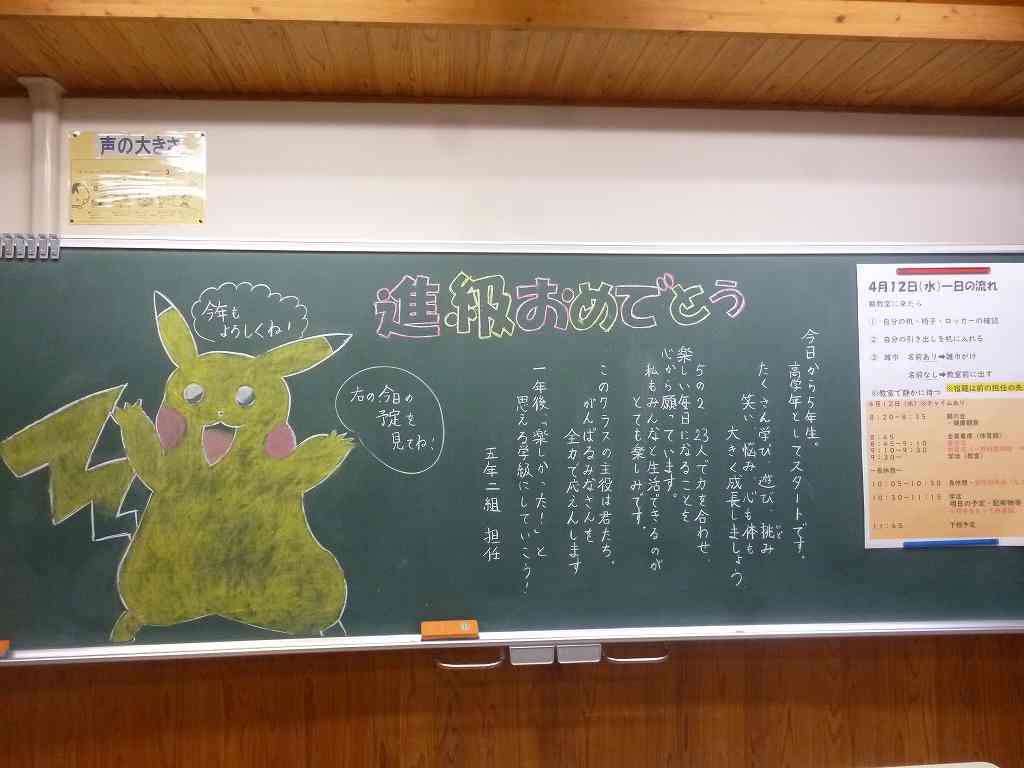 声の大きさ
進級おめでとう
今年も
よろしくね!
右の今日の
予定を
見てね!
今日から5年生。
高学年としてスタートです。
たくさん学び、遊び、挑み
笑い、悩み、心も体も
大きく成長しましょう。
5の2 23人で力を合わせ、
楽しい毎日になることを
心から願っています。
私もみんなと生活できるのが
とても楽しみです。
このクラスの主役は君たち。
がんばるみなさんを、
全力で応えんします
一年後「楽しかった!」と
思える学級にしていこう!
五年二組 担任
4月12日(水)一日の流れ
朝教室に来たら
① 自分の机・椅子・ロッカーの確認
② 自分の引き出しを机に入れる
③ 雑巾 名前あり➡雑巾がけ
名前なし➡教室前に出す
※教室で静かに待つ ※宿題は前の担任の先
4月12日(水)※チャイムあり
8:20~8:35 朝の会
・健康観察
8:45 全員着席(体育館)
8:45~9:10
9:10~9:30
9:30~ 学活(教室)
~長休憩~
10:05~10:30 長休憩
10:30~11:15 学活
明日の予定・配布物等
11:45 下校予定